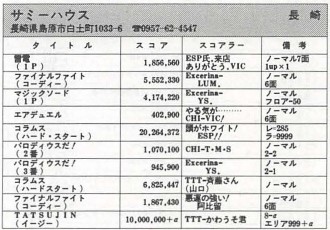 サミーハウス 長崎
長崎県島原市白土町1033-6 ☎0957-62-4547
タイトル スコア スコアラー 備考
雷電 1,856,560 ESP氏、来店 ノーマル7面
(1P) ありがとう。VIC 1up×1
ファイナルファイト 5,552,330 Excerima- ノーマル
(コーディー) LUM. 6面
マジックソード 4,174,220 Excerima- ノーマル
(1P) YS. フロア-50
エアデュエル 402,900 やる気が………
CHI-VIC!
コラムス 20,264,372 頭がホワイト! L-285
(ハード・スタート) ESP!! ラ-9999
パロディウスだ! 1,070,100 CHI-T・M・S ノーマル
(2番) 2-2
パロディウスだ! 945,900 Excerima- ノーマル
(3番) YS. 2-1
コラムス 6,825,447 TTT-斉藤さん ノーマル
(ハードスタート) (山口)
ファイナルファイト 1,867,430 悪運の強い! ノーマル
(コーディー) 阿比留 6面
TATSUJIN 10,000,000+α TTT-かわうそ君 8-α
(イージー) エリア999+α